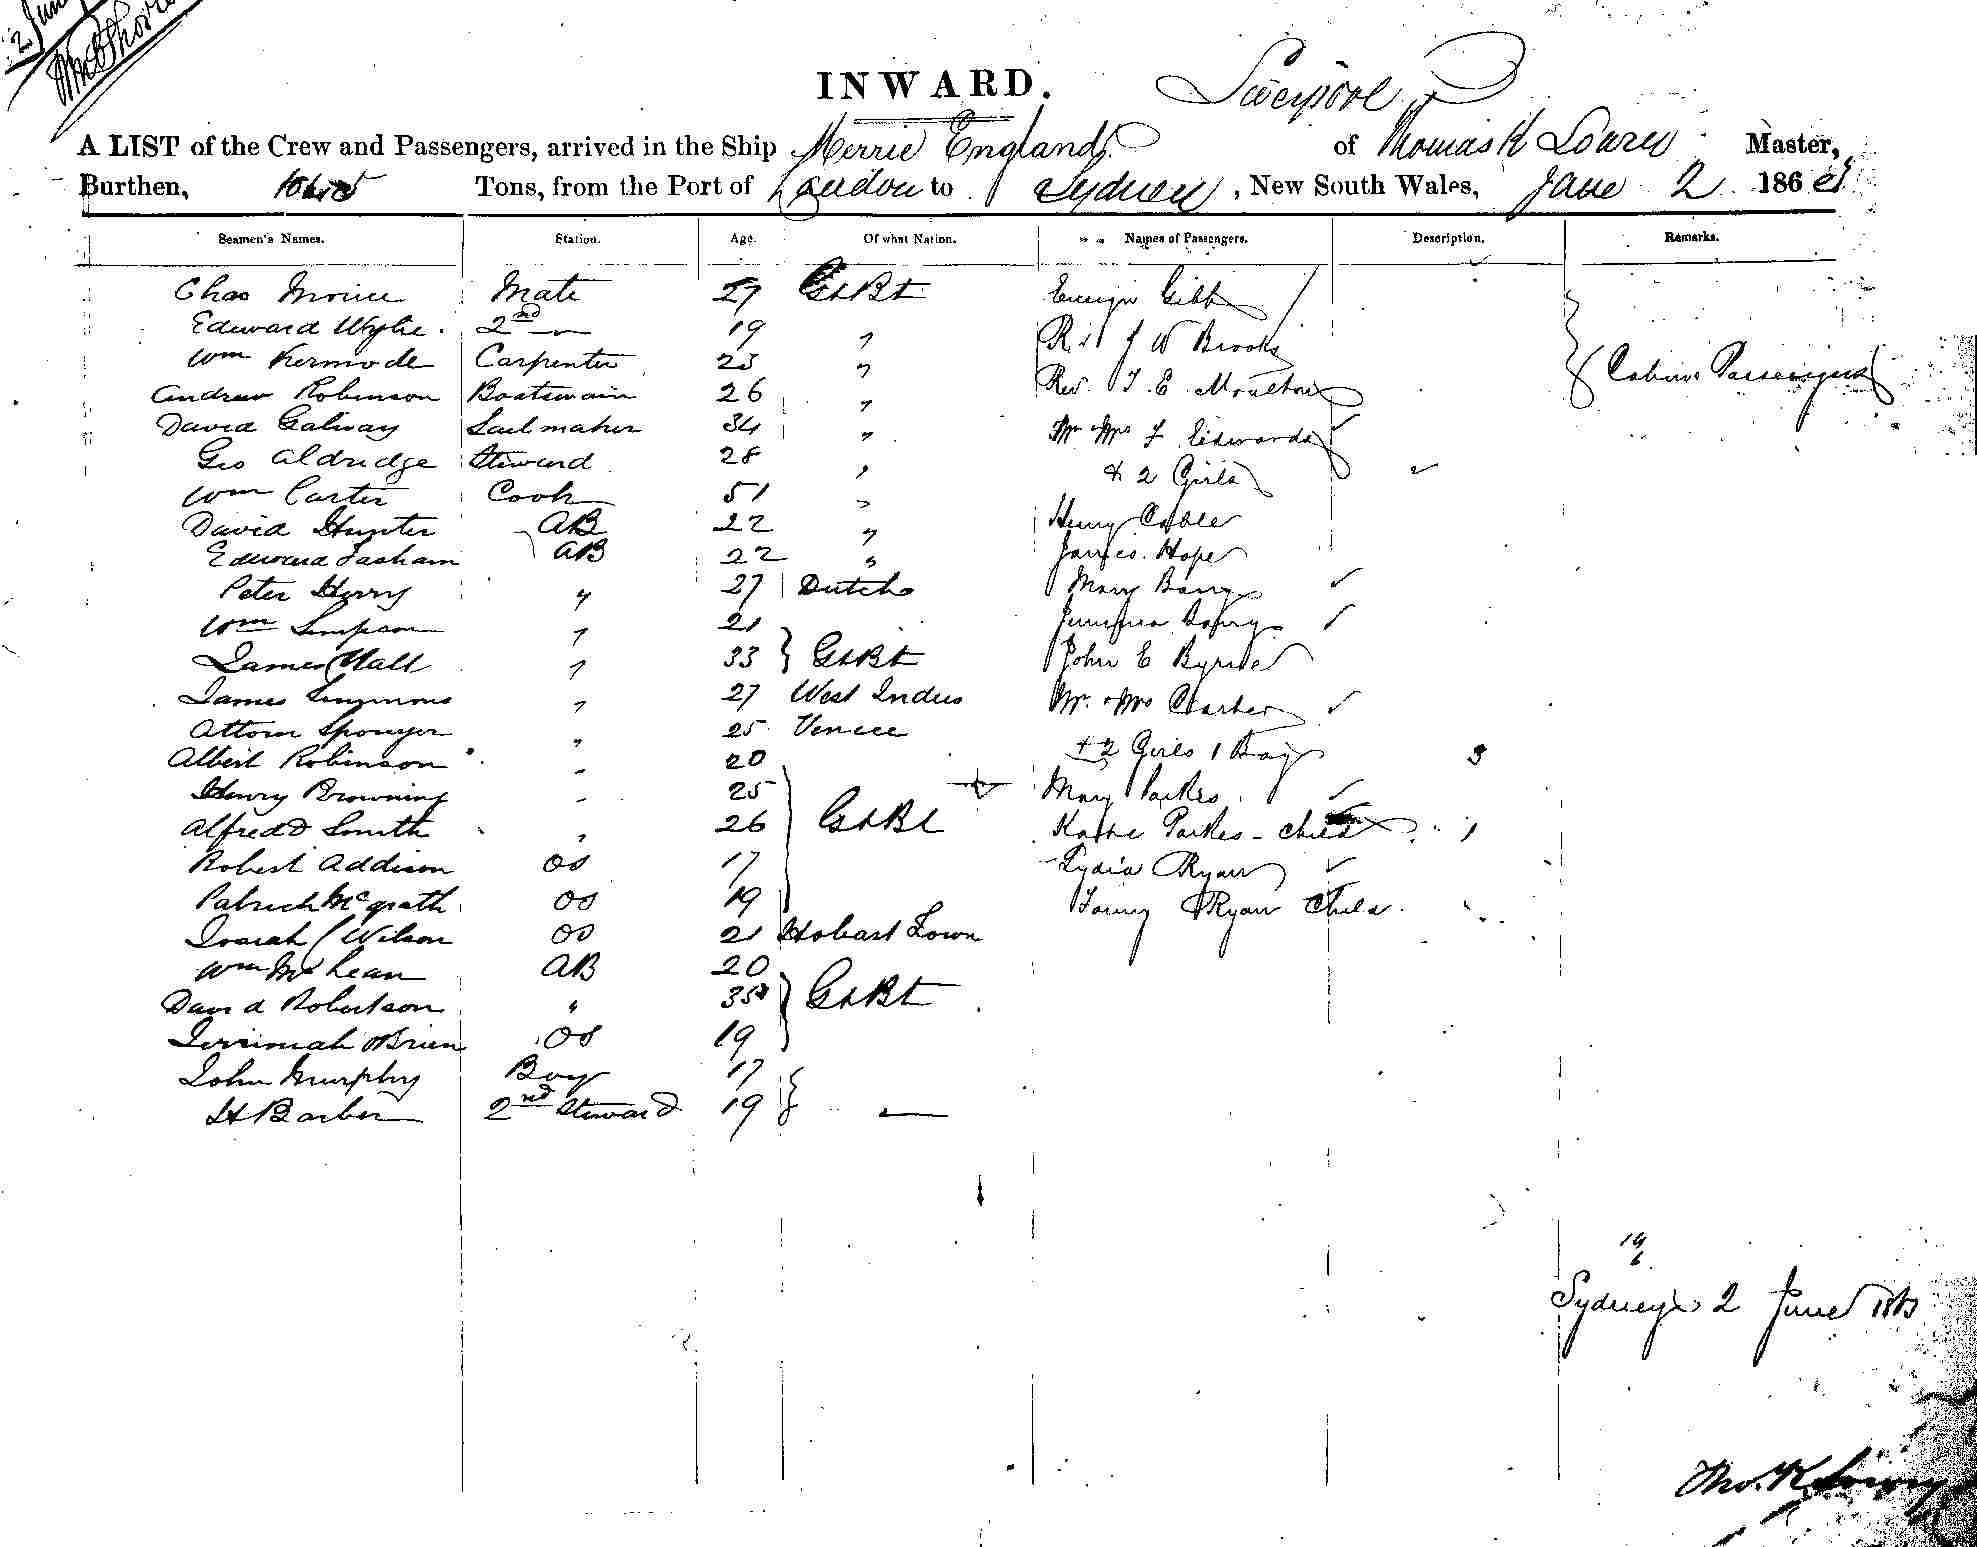 2 June
INWARD.
Liverpool
A LIST of the Crew and Passengers, arrived in the Ship Merrie England of Thomas K Master,
Burthen, Tons, from the Port of London to Sydney, New South Wales, June 2 186
Seamen's Names. Station. Age. Of what Nation. Names of Passengers. Description. Remarks.
Chas Mate 29 Gt Bt Ensign Gibb
Edward Wylie 2nd — 19 " Rev J W Brooks
Wm Kermode Carpenter 23 " Cabin Passengers
Andrew Robinson Boatswain 26 " Rev. J. E. Moulton
David Galway Sailmaker 34 " Mr & Mrs J Edwards
Geo Aldridge Steward 28 " & 2 Girls 2
Wm Carter Cook 51 "
David Hunter AB 22 " Henry Cable
Edward AB 22 " James Hope
Peter " 27 Dutch Mary Barry
Wm Simpson " 21 Barry
James Hall " 33 Gt Bt John E Byrne
James Simmons " 27 West Indies Mr. & Mrs
" 25 Venice
Albert Robinson " 20 + 2 Girls 1 Boy 3
Henry Browning " 25 Mary Parkes
Alfred D Smith " 26 Gt Bt Parkes - child 1
Robert Addison OS 17 Lydia Ryan
Patrick McGrath OS 19 Ryan Child.
Josiah Wilson OS 21 Hobart Town
Wm McLean AB 20
David Robertson " 35 Gt Bt
Jerrimiah OBrien OS 19
John Murphy Boy 17
H Barber 2nd Steward 19 —
19
6
Sydney 2 June
Tho. K